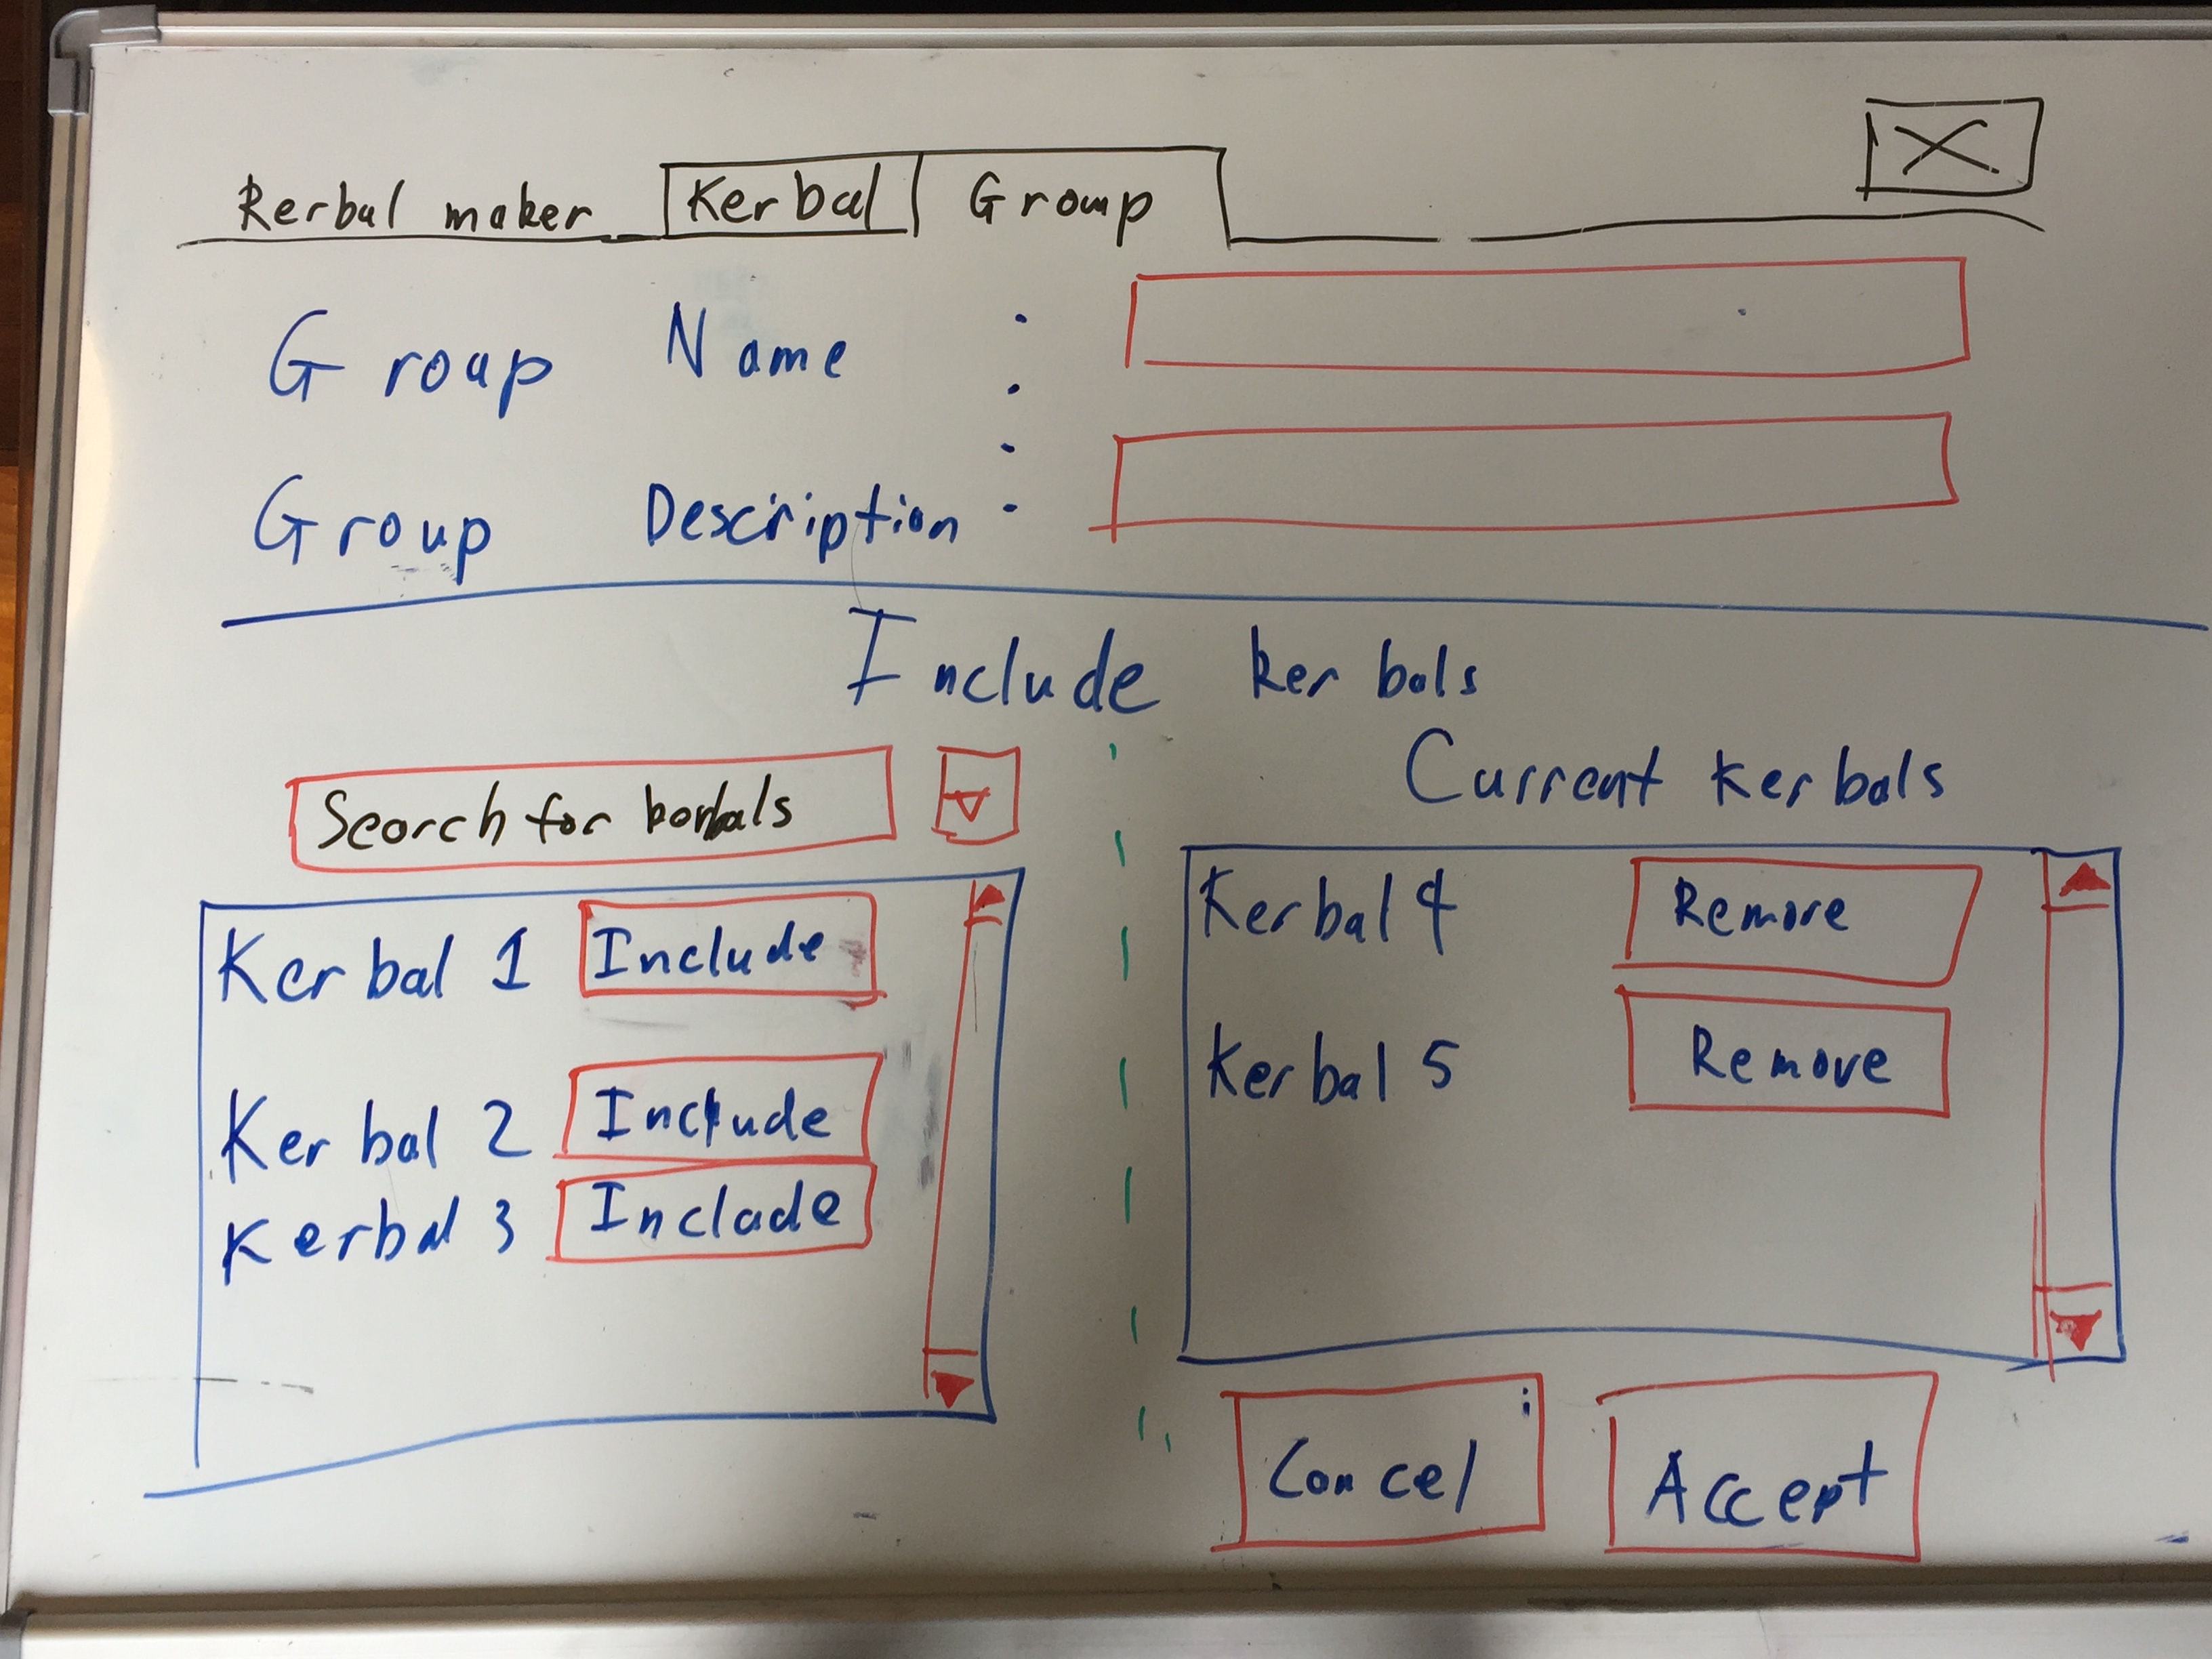 Kerbal maker Kerbal Group X
Group Name :
Group Description :
Include kerbals
Search for kerbals
Current Kerbals
Kerbal 1 Include
Kerbal 2 Include
Kerbal 3 Include
Kerbal 4 Remove
Kerbal 5 Remove
Cancel Accept